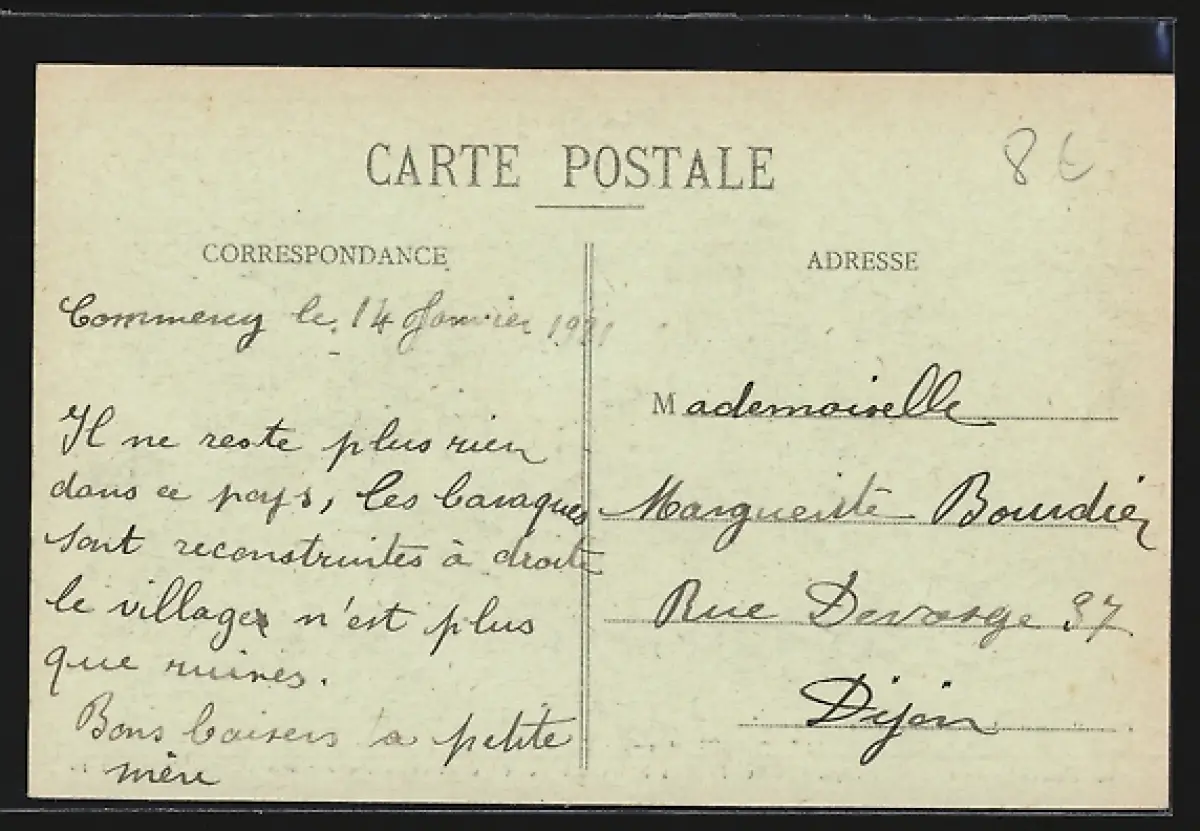 CARTE POSTALE
8€
CORRESPONDANCE
Commercy le 14 Janvier 1921
Il ne reste plus rien
dans ce pays, les baraques
sont reconstruites à droite
le village n'est plus
que ruines.
Bons baisers ta petite
mère
ADRESSE
Mademoiselle
Marguerite Bourdier
Rue Devosge 37
Dijon